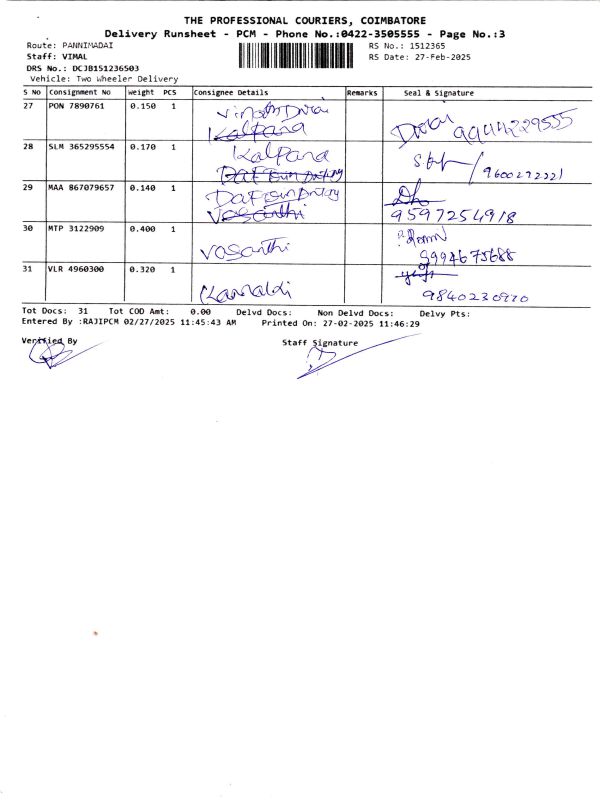 THE PROFESSIONAL COURIERS, COIMBATORE
Delivery Runsheet - PCM - Phone No.:0422-3505555 - Page No.:3
Route: PANNIMADAI RS No.: 1512365
Staff: VIMAL RS Date: 27-Feb-2025
DRS No.: DCJB151236503
Vehicle: Two Wheeler Delivery
S No Consignment No Weight PCS Consignee Details Remarks Seal & Signature
27 PON 7890761 0.150 1 Vinoth Durai
Kalpana
28 SLM 365295554 0.170 1 Kalpana
9600272221
29 MAA 867079657 0.140 1
Vasanthi 9597254918
30 MTP 3122909 0.400 1
Vasanthi 9994675688
31 VLR 4960300 0.320 1
9840230920
Tot Docs: 31 Tot COD Amt: 0.00 Delvd Docs: Non Delvd Docs: Delvy Pts:
Entered By :RAJIPCM 02/27/2025 11:45:43 AM Printed On: 27-02-2025 11:46:29
Verified By Staff Signature